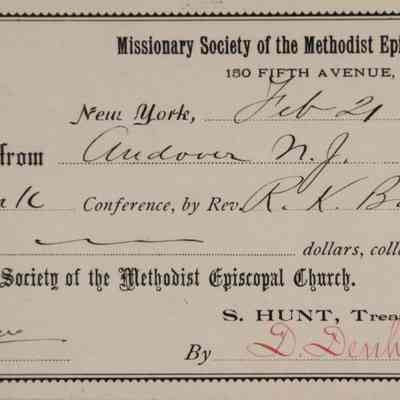 Missionary Society of the Methodist Epi
150 FIFTH AVENUE,
New York, Feb 21
from Andover N.J.
Conference, by Rev. R. K. B
dollars, colle
Society of the Methodist Episcopal Church.
S. HUNT, Treas
By D. Denh